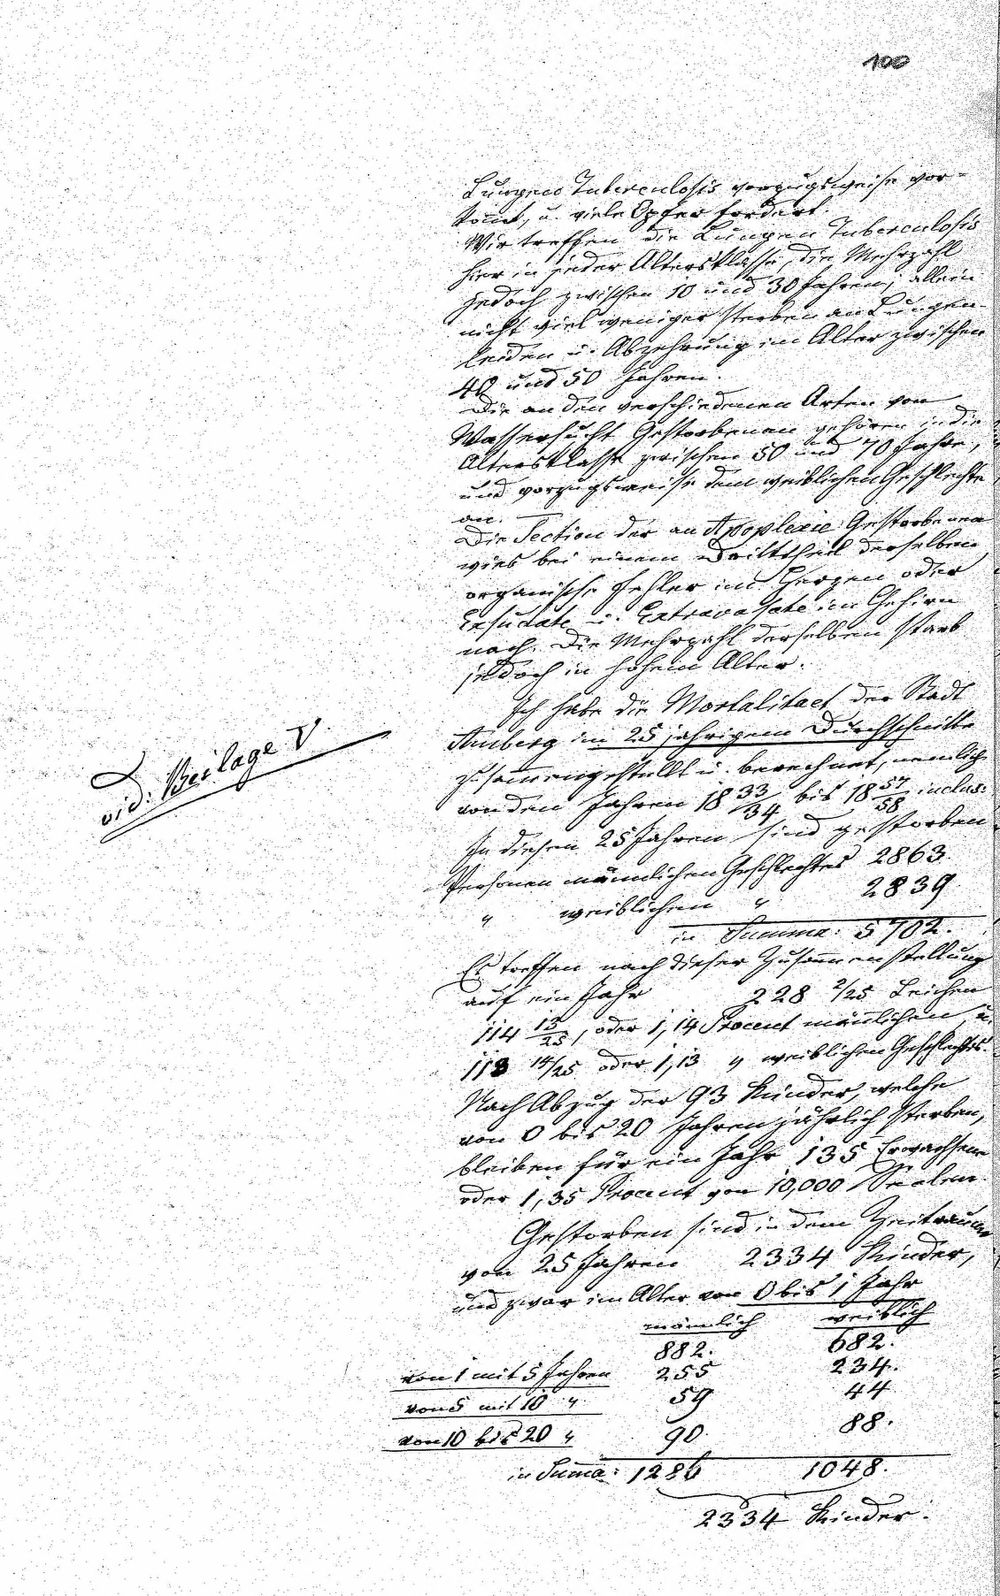 100
Lungen Tuberculosis vorzugsweise vor=
kommt, u. viele Opfer fordert.
Wir treffen die Lungen Tuberculosis
hier in jeder Altersklasse, die Mehrzahl
jedoch zwischen 10 und 30 Jahren; allein
nicht viel weniger sterben an Lungen-
leiden u. Abzehrung im Alter zwischen
40 und 50 Jahren.
Die an den verschiedenen Arten von
Wassersucht Gestorbenen gehören in die
Altersklasse zwischen 50 und 70 Jahre,
und vorzugsweise dem weiblichen Geschlechte
an.
Die Section der an Apoplexie Gestorbenen
wies bei einem Dritttheil derselben
organische Fehler im Herzen oder
Exsudate u. Extravasate im Gehirn
nach. Die Mehrzahl derselben starb
jedoch in hohem Alter.
Ich habe die Mortalitaet der Stadt
Amberg im 25 jahrigem Durchschnitte
vid. Beilage V
zusammengestellt u. berechnet, nemlich
von den Jahren 18 33/34 bis 18 57/58 inclus:
In diesen 25 Jahren sind gestorben
Personen männlichen Geschlechtes 2863.
" weiblichen " 2839
in Summa: 5702.
Es treffen nach dieser Zusammenstellung
auf ein Jahr 228 2/25 Leichen
114 13/25, oder 1,14 Procent männlichen u.
113 14/25 oder 1,13 " weiblichen Geschlechts.
Nach Abzug der 93 Kinder, welche
von 0 bis 20 Jahren jährlich sterben,
bleiben für ein Jahr 135 Erwachsene
oder 1,35 Procent von 10,000 Seelen.
Gestorben sind in dem Zeitraume
von 25 Jahren 2334 Kinder,
und zwar im Alter von 0 bis 1 Jahr
männlich weiblich
882. 682.
von 1 mit 5 Jahren 255 234.
von 5 mit 10 " 59 44
von 10 bis 20 " 90. 88.
in Suma: 1286 1048.
2334 Kinder.